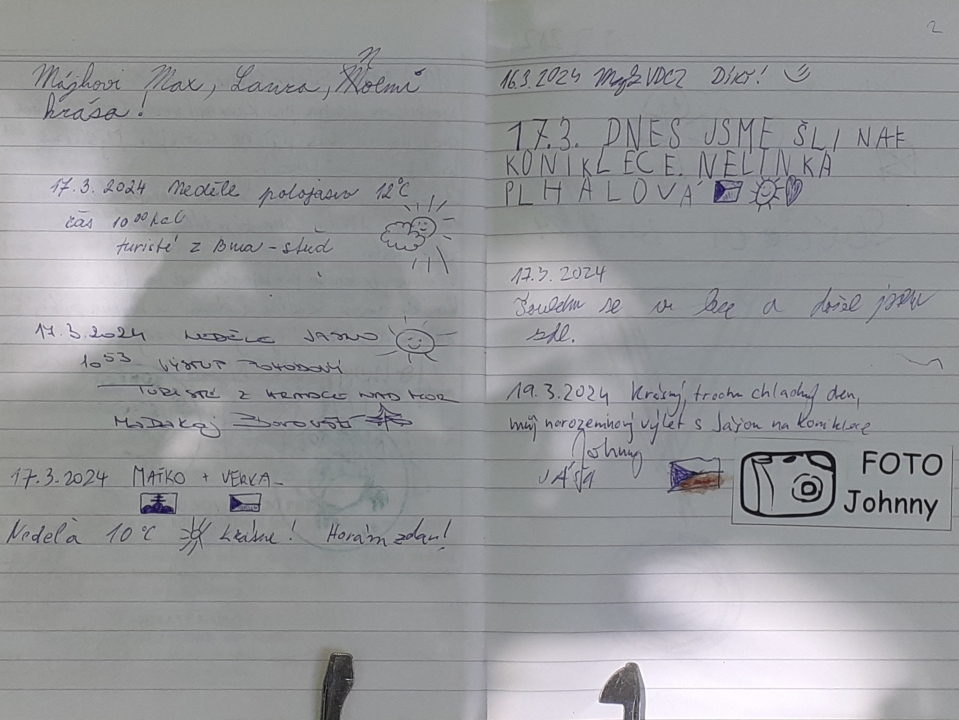 Májkovi Max, Laura, Noemi
krása!
17.3.2024 Neděle polojasno 12°C
čas 10⁰⁰ hod
turisté z Brna - střed
17.3.2024 NEDĚLE JASNO
10⁵³ VÝSTUP POHODOVÝ
TURISTÉ Z HRADCE NAD MOR
17.3.2024 MAŤKO + VERKA
Nedeľa 10°C krásne! Horám zdar!
2
16.3.2024 DÍKY!
17.3. DNES JSME ŠLI NA
KONIKLECE. NELINKA
PLHALOVÁ
17.3.2024
se v a došel jsem
19.3.2024 Krásný, trochu chladný den,
můj narozeninový výlet s Jájou na koniklece
Johnny
JÁJA
FOTO
Johnny